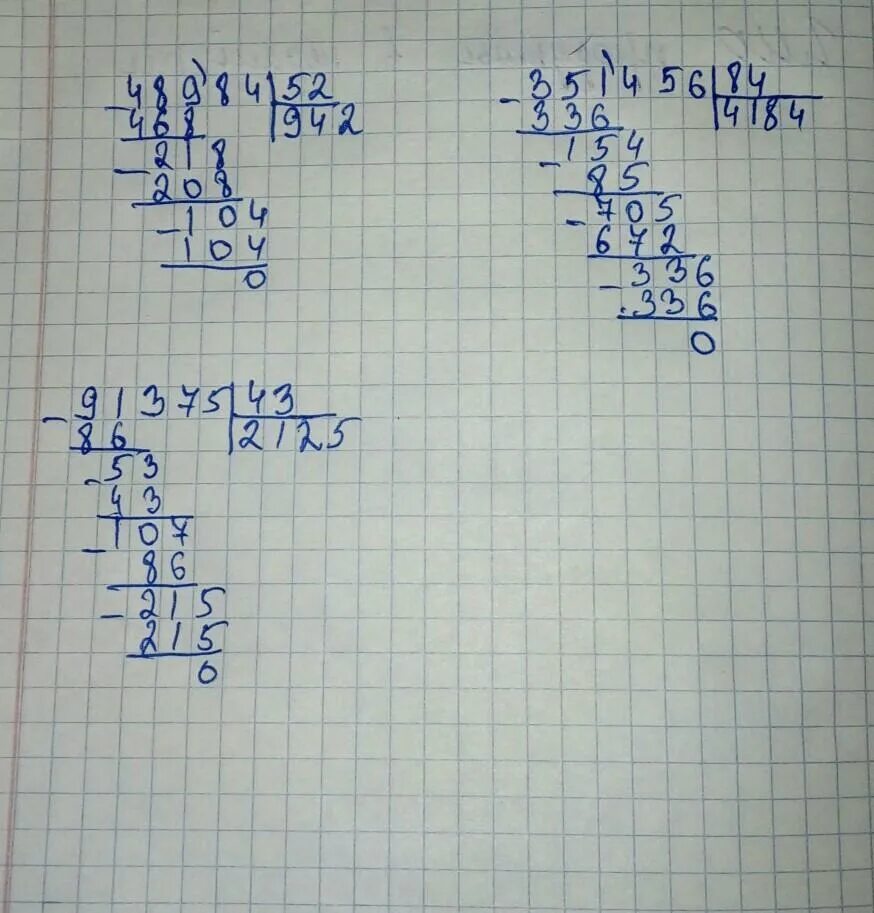 48984 52
468 942
218
208
104
104
0
351456 84
336 4184
154
85
705
672
336
336
0
91375 43
86 2125
53
43
107
86
215
215
0